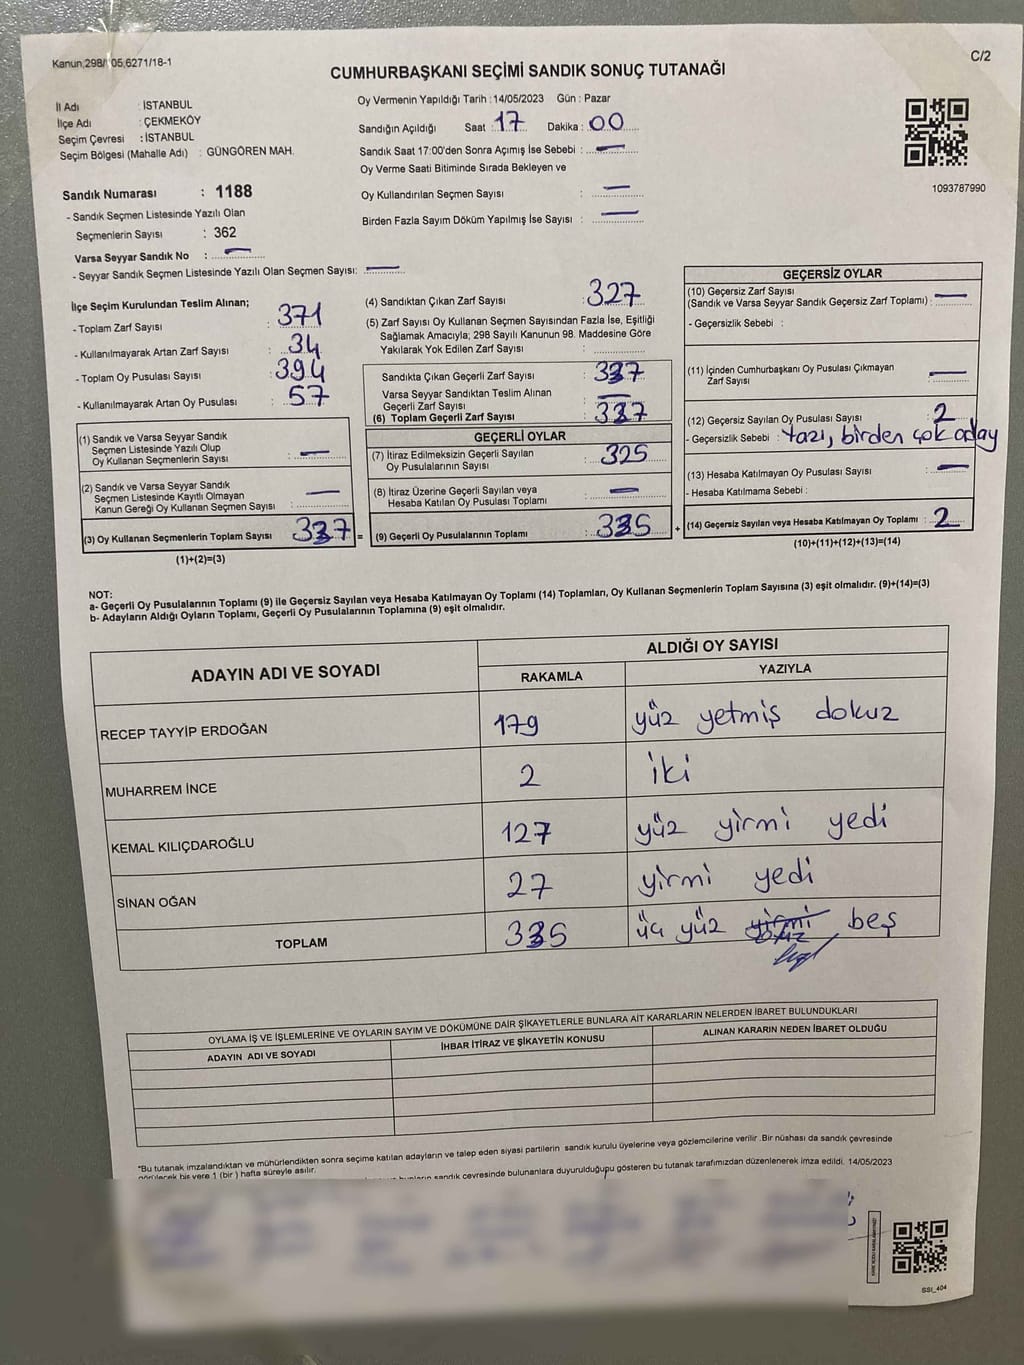 Kanun;298/105;6271/18-1
C/2
CUMHURBAŞKANI SEÇİMİ SANDIK SONUÇ TUTANAĞI
İl Adı : İSTANBUL
İlçe Adı : ÇEKMEKÖY
Seçim Çevresi : İSTANBUL
Seçim Bölgesi (Mahalle Adı) : GÜNGÖREN MAH.
Sandık Numarası : 1188
- Sandık Seçmen Listesinde Yazılı Olan
Seçmenlerin Sayısı : 362
Varsa Seyyar Sandık No : —
- Seyyar Sandık Seçmen Listesinde Yazılı Olan Seçmen Sayısı: —
Oy Vermenin Yapıldığı Tarih : 14/05/2023 Gün : Pazar
Sandığın Açıldığı Saat : 17 Dakika : 00
Sandık Saat 17:00'den Sonra Açımış İse Sebebi : —
Oy Verme Saati Bitiminde Sırada Bekleyen ve
Oy Kullandırılan Seçmen Sayısı : —
Birden Fazla Sayım Döküm Yapılmış İse Sayısı : —
1093787990
İlçe Seçim Kurulundan Teslim Alınan;
- Toplam Zarf Sayısı : 371
- Kullanılmayarak Artan Zarf Sayısı : 34
- Toplam Oy Pusulası Sayısı : 394
- Kullanılmayarak Artan Oy Pusulası : 57
(1) Sandık ve Varsa Seyyar Sandık
Seçmen Listesinde Yazılı Olup
Oy Kullanan Seçmenlerin Sayısı : —
(2) Sandık ve Varsa Seyyar Sandık
Seçmen Listesinde Kayıtlı Olmayan
Kanun Gereği Oy Kullanan Seçmen Sayısı : —
(3) Oy Kullanan Seçmenlerin Toplam Sayısı 337 =
(1)+(2)=(3)
(4) Sandıktan Çıkan Zarf Sayısı : 327
(5) Zarf Sayısı Oy Kullanan Seçmen Sayısından Fazla İse, Eşitliği
Sağlamak Amacıyla; 298 Sayılı Kanunun 98. Maddesine Göre
Yakılarak Yok Edilen Zarf Sayısı :
Sandıkta Çıkan Geçerli Zarf Sayısı : 337
Varsa Seyyar Sandıktan Teslim Alınan
Geçerli Zarf Sayısı : —
(6) Toplam Geçerli Zarf Sayısı : 337
GEÇERLİ OYLAR
(7) İtiraz Edilmeksizin Geçerli Sayılan
Oy Pusulalarının Sayısı : 325
(8) İtiraz Üzerine Geçerli Sayılan veya
Hesaba Katılan Oy Pusulası Toplamı : —
(9) Geçerli Oy Pusulalarının Toplamı : 335 +
GEÇERSİZ OYLAR
(10) Geçersiz Zarf Sayısı
(Sandık ve Varsa Seyyar Sandık Geçersiz Zarf Toplamı) : —
- Geçersizlik Sebebi :
(11) İçinden Cumhurbaşkanı Oy Pusulası Çıkmayan
Zarf Sayısı : —
(12) Geçersiz Sayılan Oy Pusulası Sayısı : 2
- Geçersizlik Sebebi : Yazı, birden çok aday
(13) Hesaba Katılmayan Oy Pusulası Sayısı : —
- Hesaba Katılmama Sebebi :
(14) Geçersiz Sayılan veya Hesaba Katılmayan Oy Toplamı : 2
(10)+(11)+(12)+(13)=(14)
NOT:
a- Geçerli Oy Pusulalarının Toplamı (9) ile Geçersiz Sayılan veya Hesaba Katılmayan Oy Toplamı (14) Toplamları, Oy Kullanan Seçmenlerin Toplam Sayısına (3) eşit olmalıdır. (9)+(14)=(3)
b- Adayların Aldığı Oyların Toplamı, Geçerli Oy Pusulalarının Toplamına (9) eşit olmalıdır.
ADAYIN ADI VE SOYADI
ALDIĞI OY SAYISI
RAKAMLA YAZIYLA
RECEP TAYYİP ERDOĞAN 179 yüz yetmiş dokuz
MUHARREM İNCE 2 iki
KEMAL KILIÇDAROĞLU 127 yüz yirmi yedi
SİNAN OĞAN 27 yirmi yedi
TOPLAM 335 üç yüz yirmi otuz beş
OYLAMA İŞ VE İŞLEMLERİNE VE OYLARIN SAYIM VE DÖKÜMÜNE DAİR ŞİKAYETLERLE BUNLARA AİT KARARLARIN NELERDEN İBARET BULUNDUKLARI
ADAYIN ADI VE SOYADI İHBAR İTİRAZ VE ŞİKAYETİN KONUSU ALINAN KARARIN NEDEN İBARET OLDUĞU
*Bu tutanak imzalandıktan ve mühürlendikten sonra seçime katılan adayların ve talep eden siyasi partilerin sandık kurulu üyelerine veya gözlemcilerine verilir .Bir nüshası da sandık çevresinde
görülecek bir yere 1 (bir ) hafta süreyle asılır.
bunların sandık çevresinde bulunanlara duyurulduğunu gösteren bu tutanak tarafımızdan düzenlenerek imza edildi. 14/05/2023
SSI_404